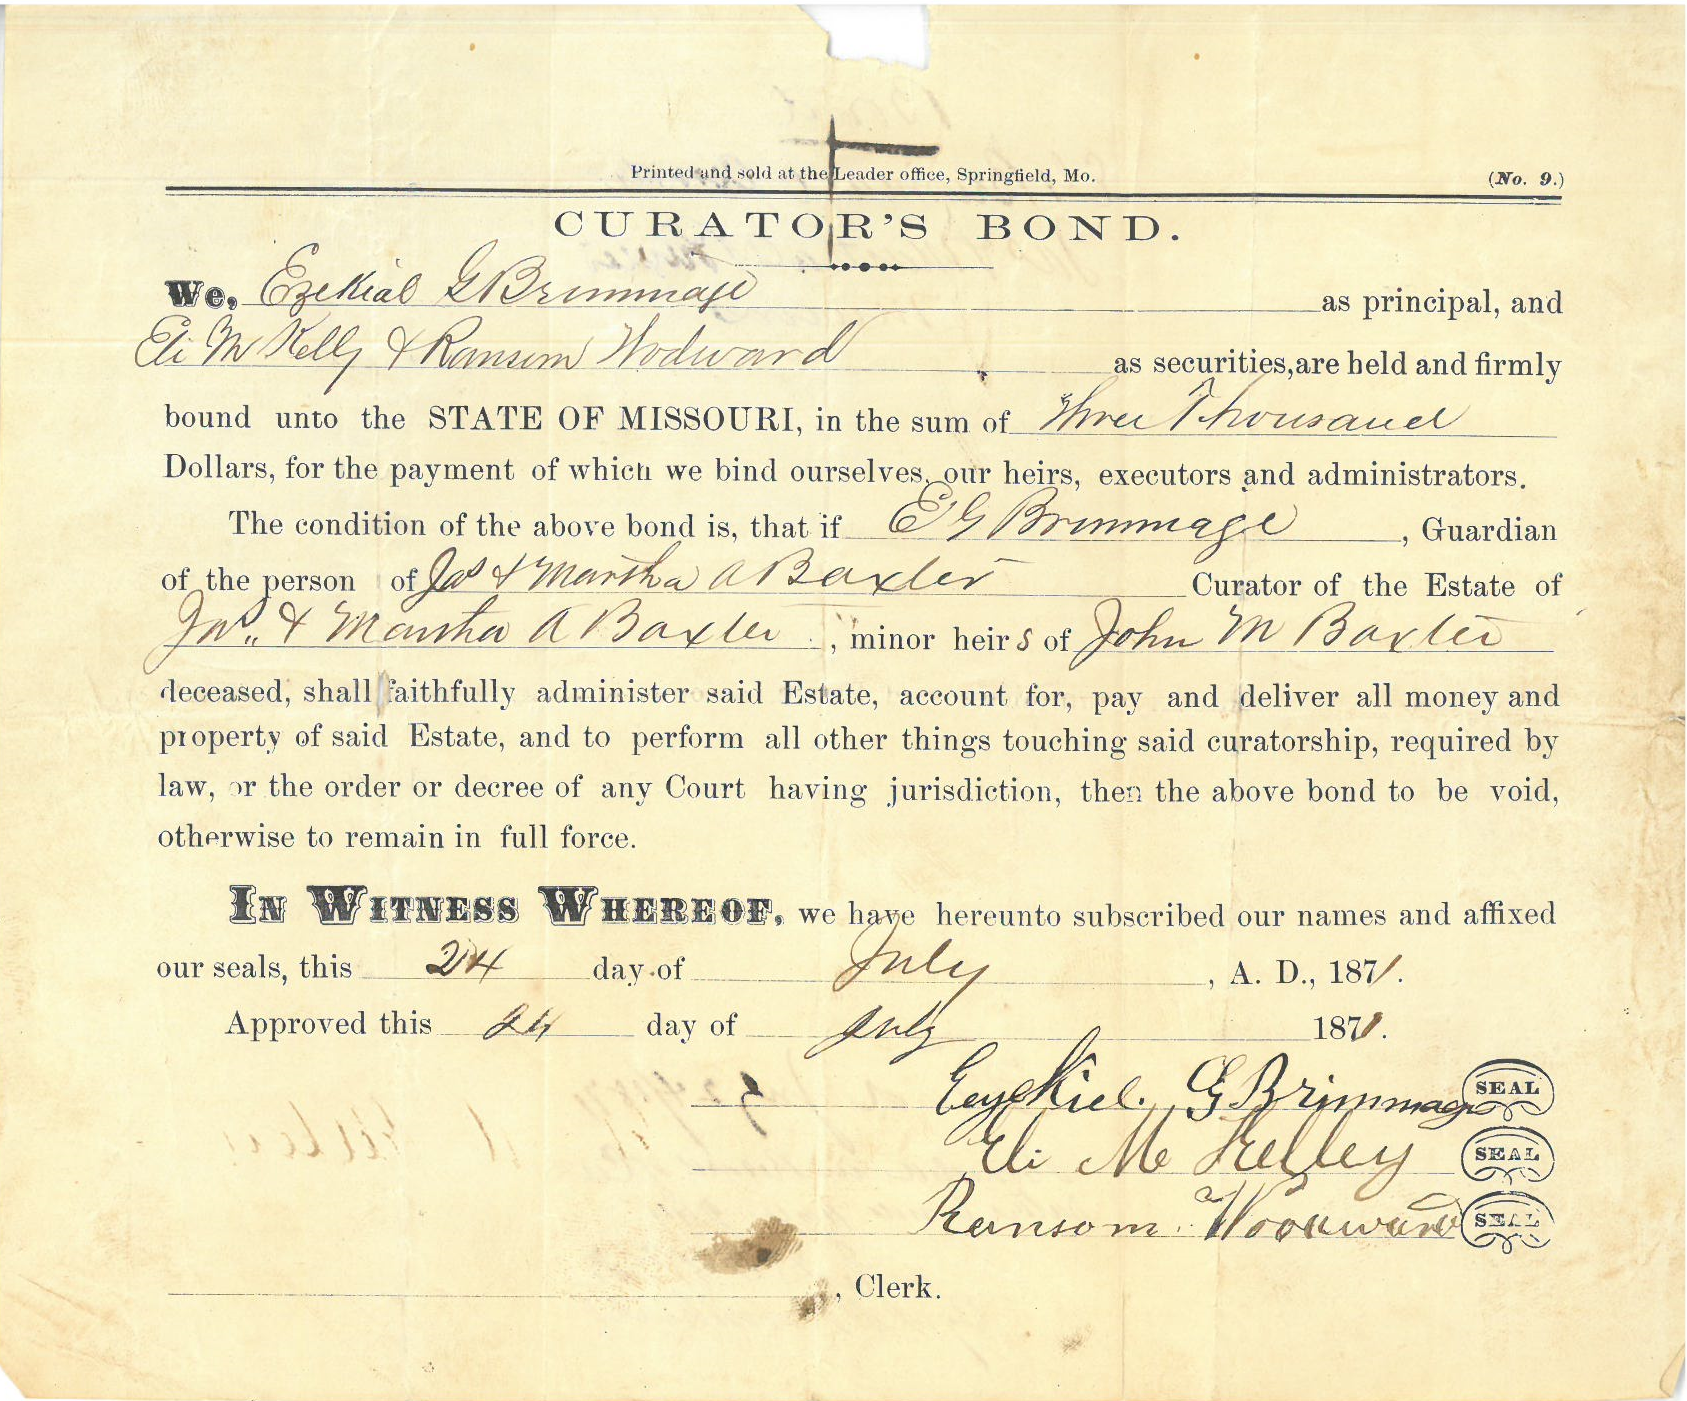 Printed and sold at the Leader office, Springfield, Mo. (No. 9.)
CURATOR'S BOND.
We, Ezekial G Brimmage as principal, and
Eli M Kelly & Ransom Wodward as securities, are held and firmly
bound unto the STATE OF MISSOURI, in the sum of Three Thousand
Dollars, for the payment of which we bind ourselves, our heirs, executors and administrators.
The condition of the above bond is, that if E G Brimmage, Guardian
of the person of Jas & Martha A Baxter Curator of the Estate of
Jas. & Martha A Baxter, minor heirs of John M Baxter
deceased, shall faithfully administer said Estate, account for, pay and deliver all money and
property of said Estate, and to perform all other things touching said curatorship, required by
law, or the order or decree of any Court having jurisdiction, then the above bond to be void,
otherwise to remain in full force.
IN WITNESS WHEREOF, we have hereunto subscribed our names and affixed
our seals, this 24 day of July, A. D., 1871.
Approved this 24 day of July 1871.
Ezekiel. G Brimmage SEAL
Eli M Kelley SEAL
Ransom Woodward SEAL
, Clerk.